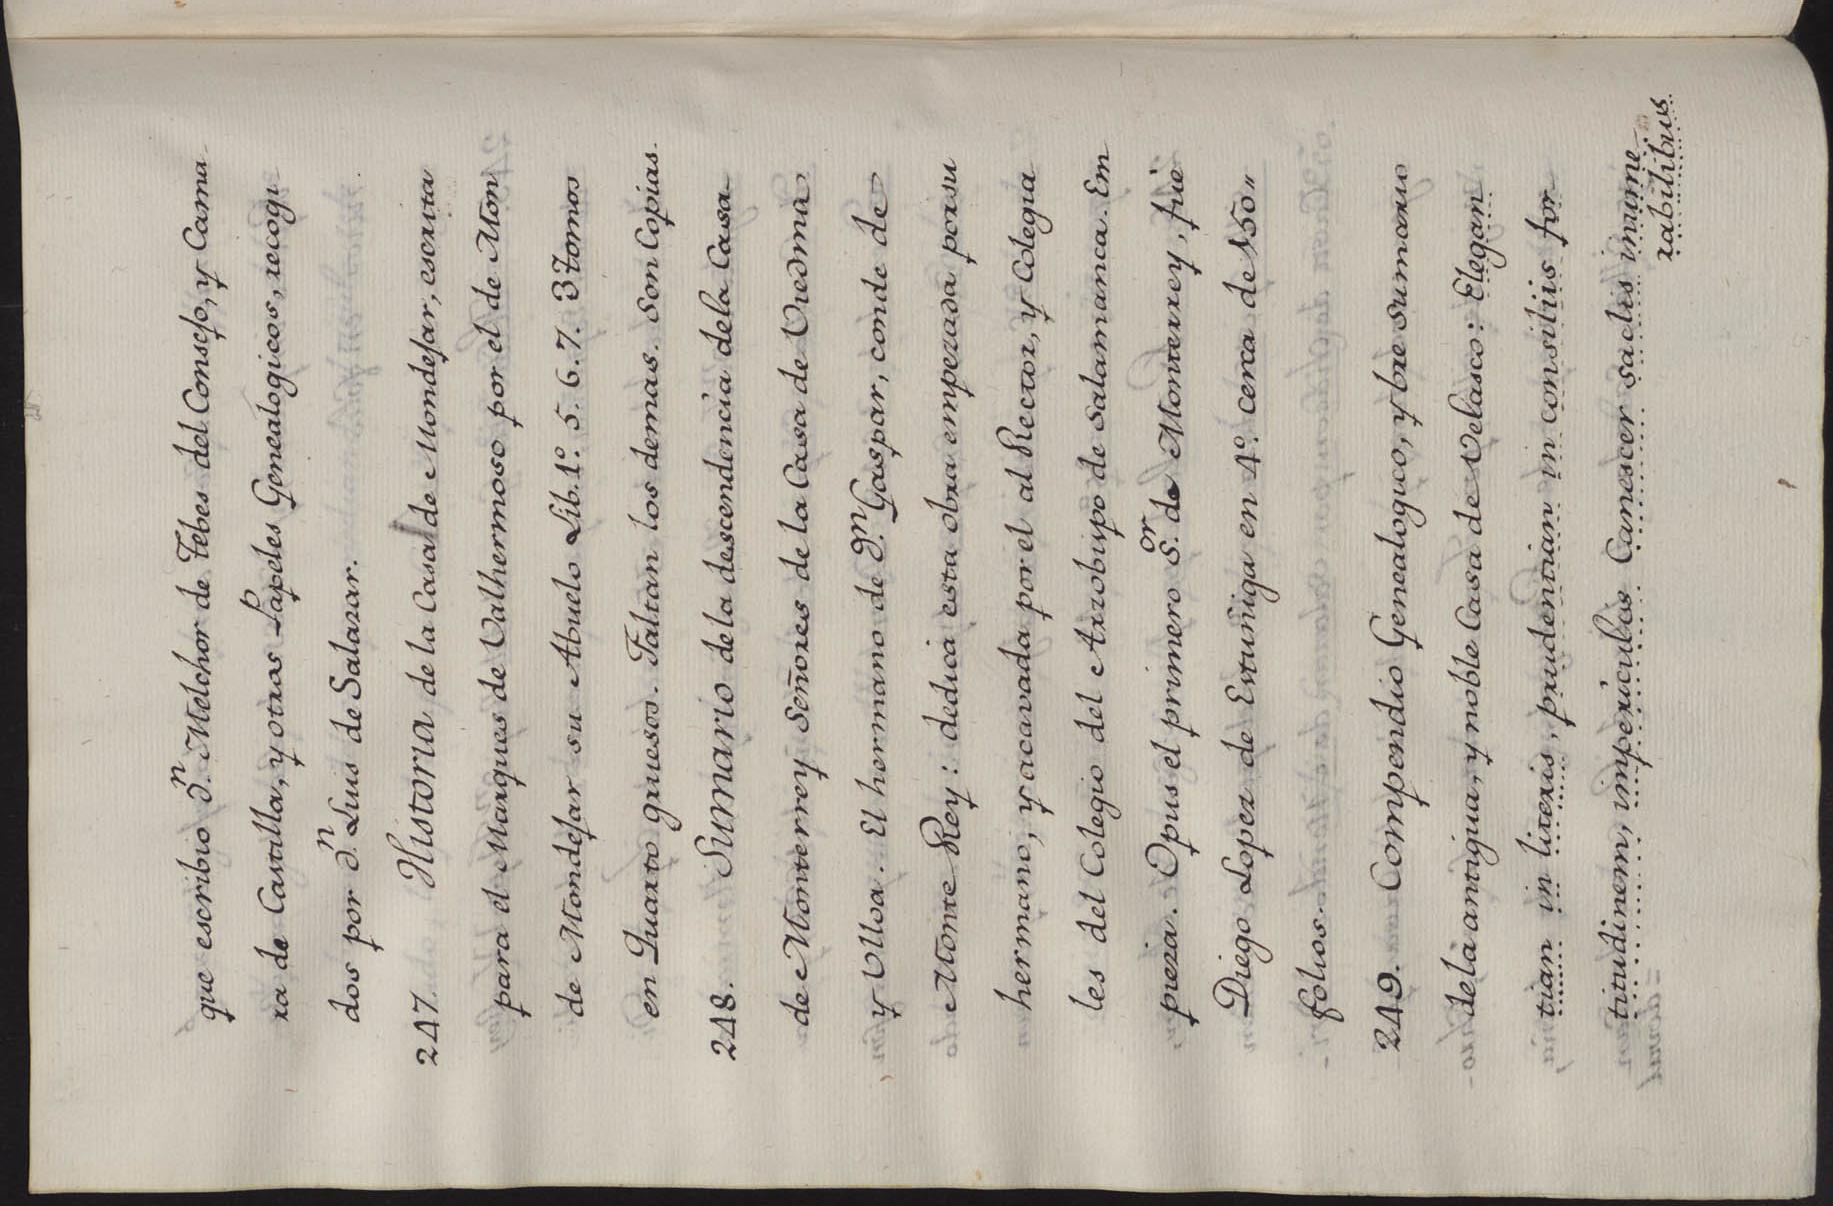 que escribio d.n Melchor de Tebes del Consejo, y Cama
ra de Castilla, y otros Papeles Genealogicos, recogi
dos por d.n Luis de Salazar.
247. Historia de la Casa de Mondejar, escrita
para el Marques de Valhermoso por el de Mon
de Mondejar su Abuelo Lib. 1.º 5. 6. 7. 3 tomos
en Quarto gruesos. Faltan los demas. Son Copias.
248. Sumario de la descendencia de la Casa
de Monterrey Señores de la Casa de Viedma
y Ulloa. El hermano de d.n Gaspar, conde de
Monte Rey: dedica esta obra empezada por su
hermano, y acavada por el al Rector, y Colegia
les del Colegio del Arzobispo de Salamanca. Em
pieza. Opus el primero S.or de Monterrey, fuè
Diego Lopez de Estuñiga en 4.º cerca de 150"
folios.
249. Compendio Genealogico, y bre sumario
de la antigua, y noble Casa de Velasco: Elegan
tian in literis, prudentian in consiliis for
titudinem, imperículos Camescer saclis inume
rabilibus.